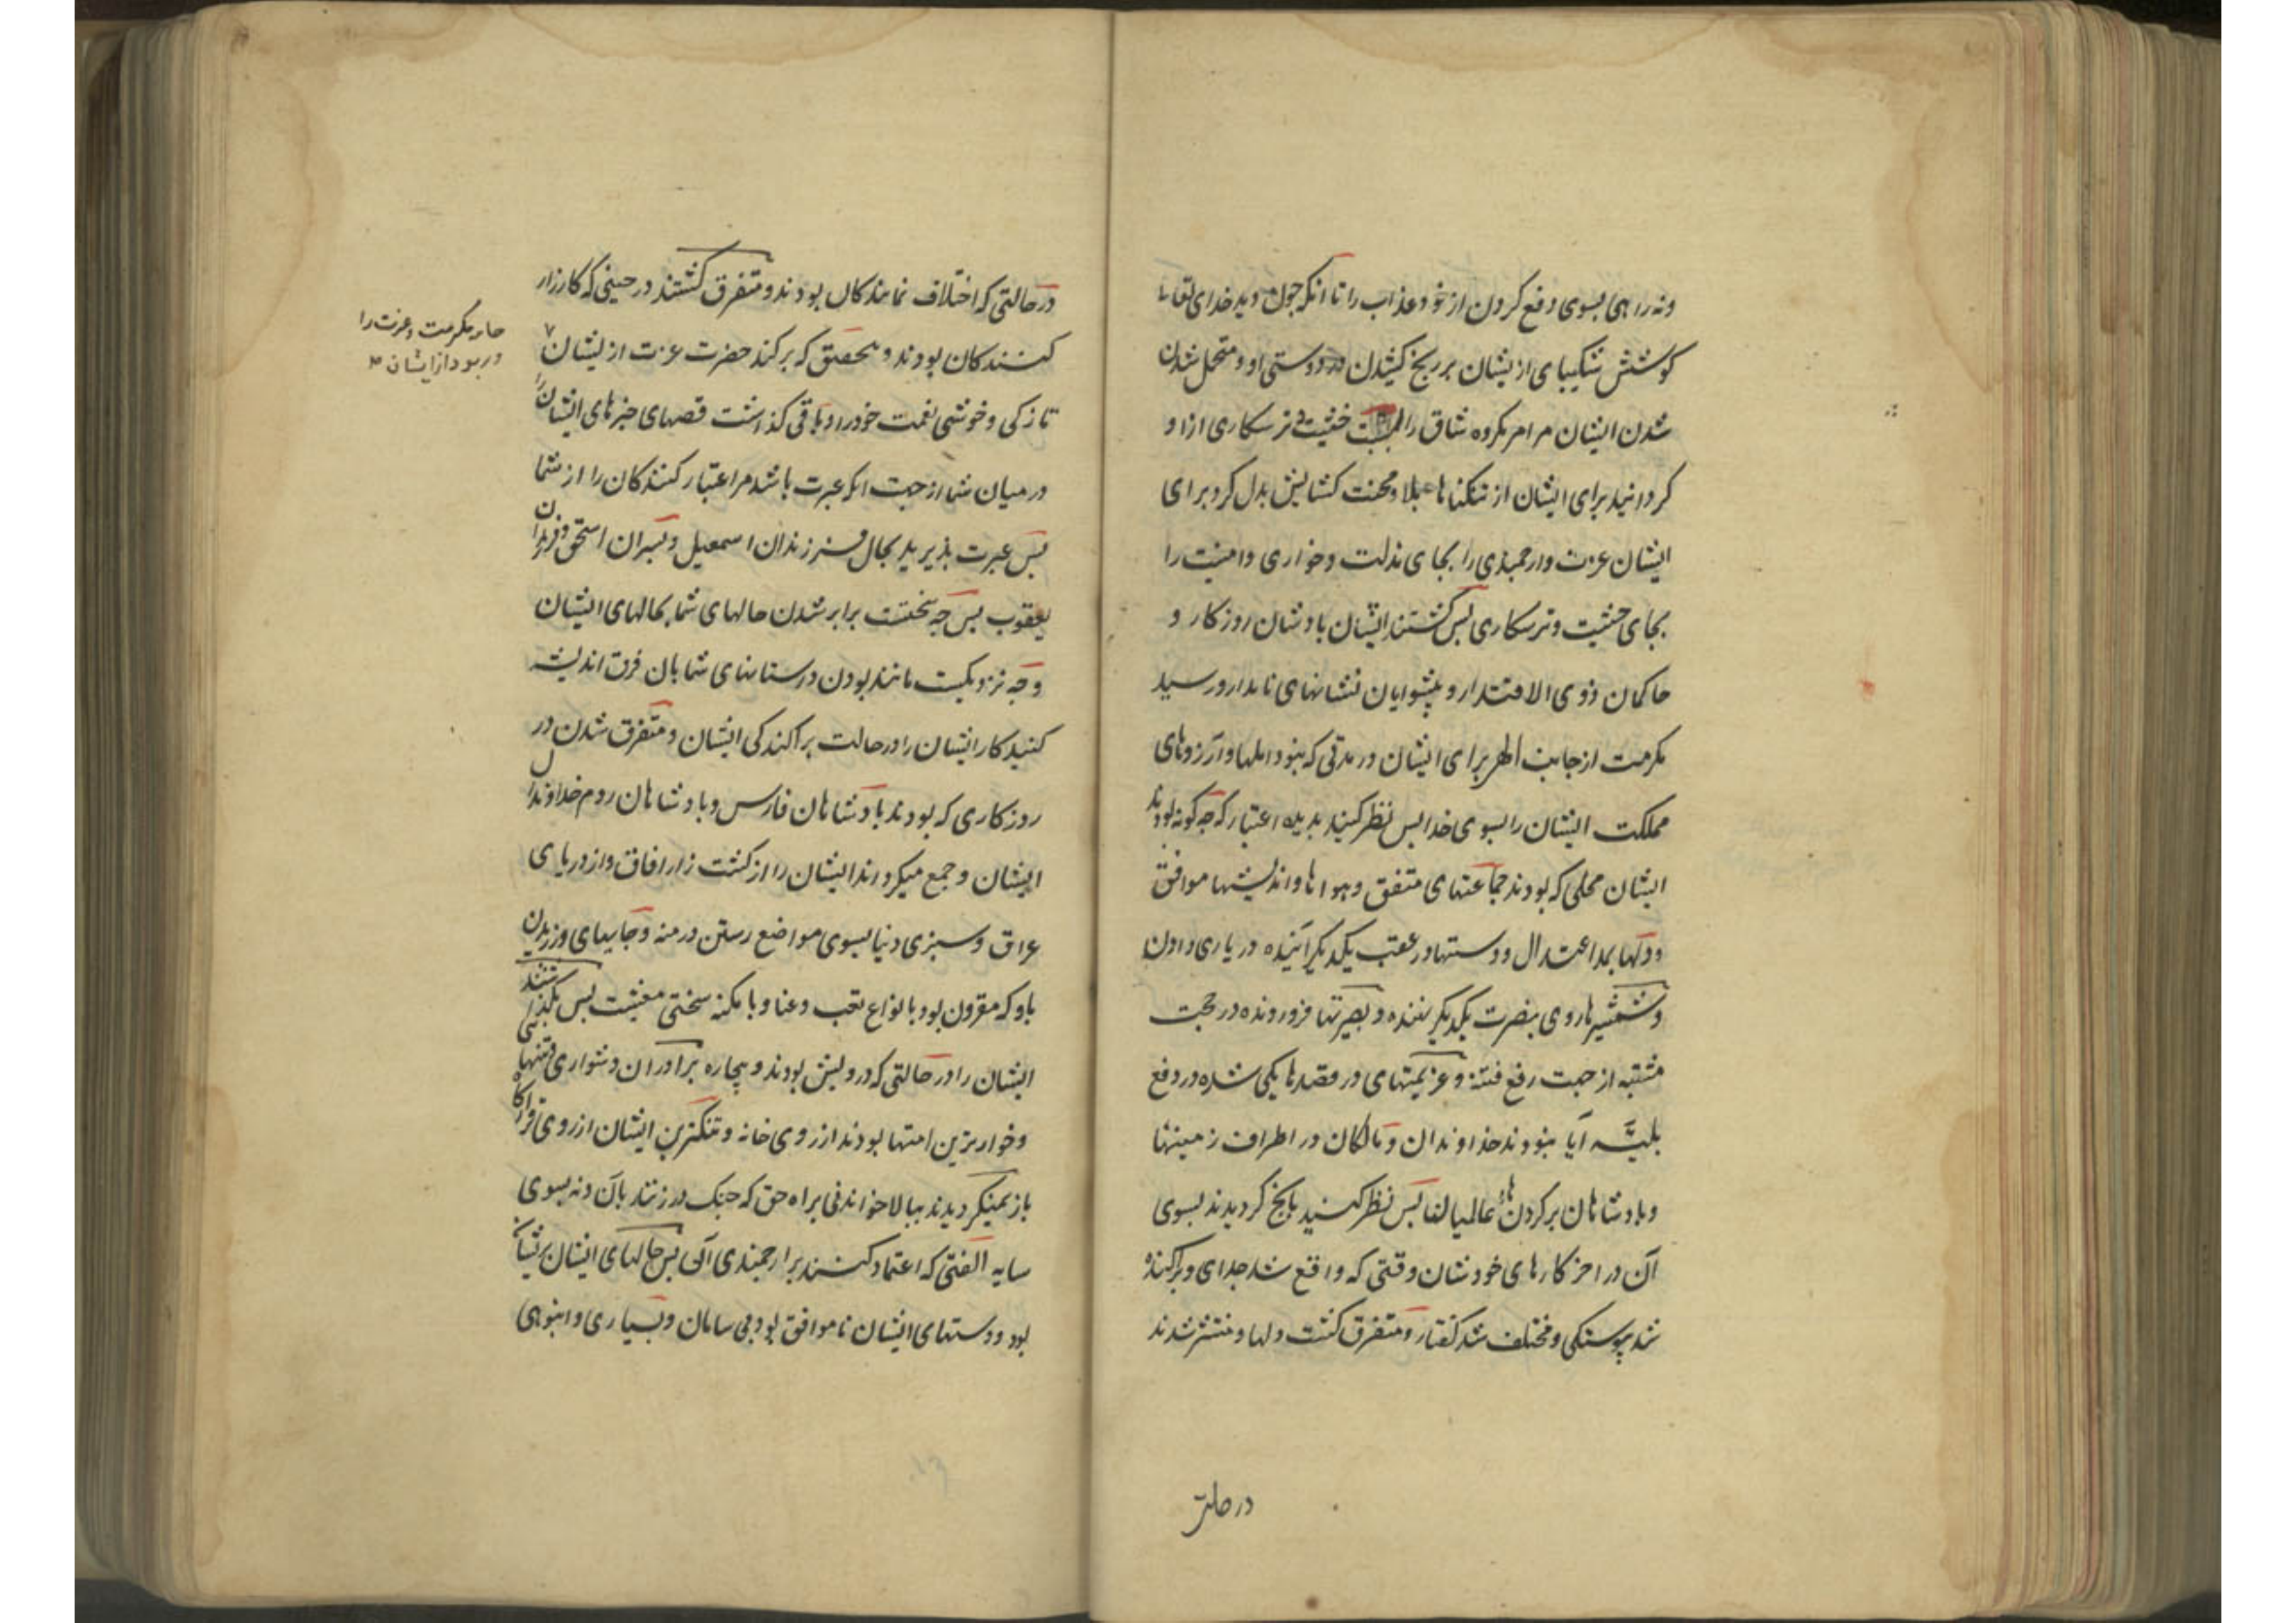 ونه راهی بسوی دفع کردن از خود عذاب را تا انکه چون دید خدای تعالی
کوشش شکیبای ازیشان بر رنج کشیدن در دوستی او و متحمل شدن
شدن ایشان مر امر مکروه شاق را خشیت و ترسکاری ازو
کردانید برای ایشان از تنکناهای بلا و محنت کشایش بدل کرد برای
ایشان عزت وارجمندی را بجای مذلت و خواری و امنیت را
بجای خشیت و ترسکاری پس کشتند ایشان پادشان روزکار و
حاکمان ذوی الاقتدار و پیشوایان نشانهای نامدار و رسید
مکرمت از جانب برای ایشان در مدتی که نبود املها و آرزوهای
مملکت ایشان را بسوی خدا پس نظر کنید بدیده اعتبار که چه کونه بودند
ایشان محلی که بودند جماعتهای متفق و هواها و اندیشها موافق
ودلها بمد اعتدال و دستها در عقب یکدیکر آینده در یاری دادن
وشمشیرها روی بنصرت یکدیکر نهنده و بصیرتها فرورونده در حجت
مشتبه از جهت رفع فتنه و عزیمتهای در مقصدها یکی شده در دفع
بلیّه آیا نبودند خداوندان و مالکان در اطراف زمینها
وپادشاهان بر کردن های عالمیان پس نظر کنید بانچ کردیدند بسوی
آن در اخر کارهای خودشان وقتی که واقع شد جدای و پراکنده
شد پیوستکی و مختلف شد کفتار و متفرق کشت دلها و منتشر شدند
در حالتی
در حالتی که اختلاف نمایندکان بودند و متفرق کشتند در حینی که کارزار
کنندکان بودند و بتحقیق که برکند حضرت عزت ازیشان ٧
جامه مکرمت و عزت را
و ربود از ایشان
تازکی و خوشی نعمت خود را و باقی کذاشت قصهای خبرهای ایشان را
در میان شما از جهت انکه عبرت باشد مر اعتبار کنندکان را از شما
پس عبرت پذیرید بحال فرزندان اسمعیل و پسران اسحق و فرزندان
یعقوب پس چه سختست برابر شدن حالهای شما بحالهای ایشان
وچه نزدیکست مانند بودن داستانهای شما بان فرق اندیشه
کنید کار ایشان را در حالت پراکندکی ایشان و متفرق شدن در
روزکاری که بودند پادشاهان فارس و پادشاهان روم خداوندان
ایشان و جمع میکردند ایشان را از کشت زار افاق و از دریای
عراق و سبزی دنیا بسوی مواضع رستن درمنه و جایهای وزیدن
باد که مقرون بود بانواع تعب و عنا و بامکنه سختی معیشت پس بکذاشتند
ایشان را در حالتی که درویش بودند و بیچاره برادران دشواری
وخوارترین امتها بودند از روی خانه و تنکترین ایشان از روی قرارکاه
باز نمیکردیدند ببالا خواندنی براه حق که چنک در زنند بآن ونه بسوی
سایه الفتی که اعتماد کنند بر ارجمندی آن پس حالهای ایشان پریشان
بود و دستهای ایشان ناموافق بود بی سامان و بسیاری و انبوهی